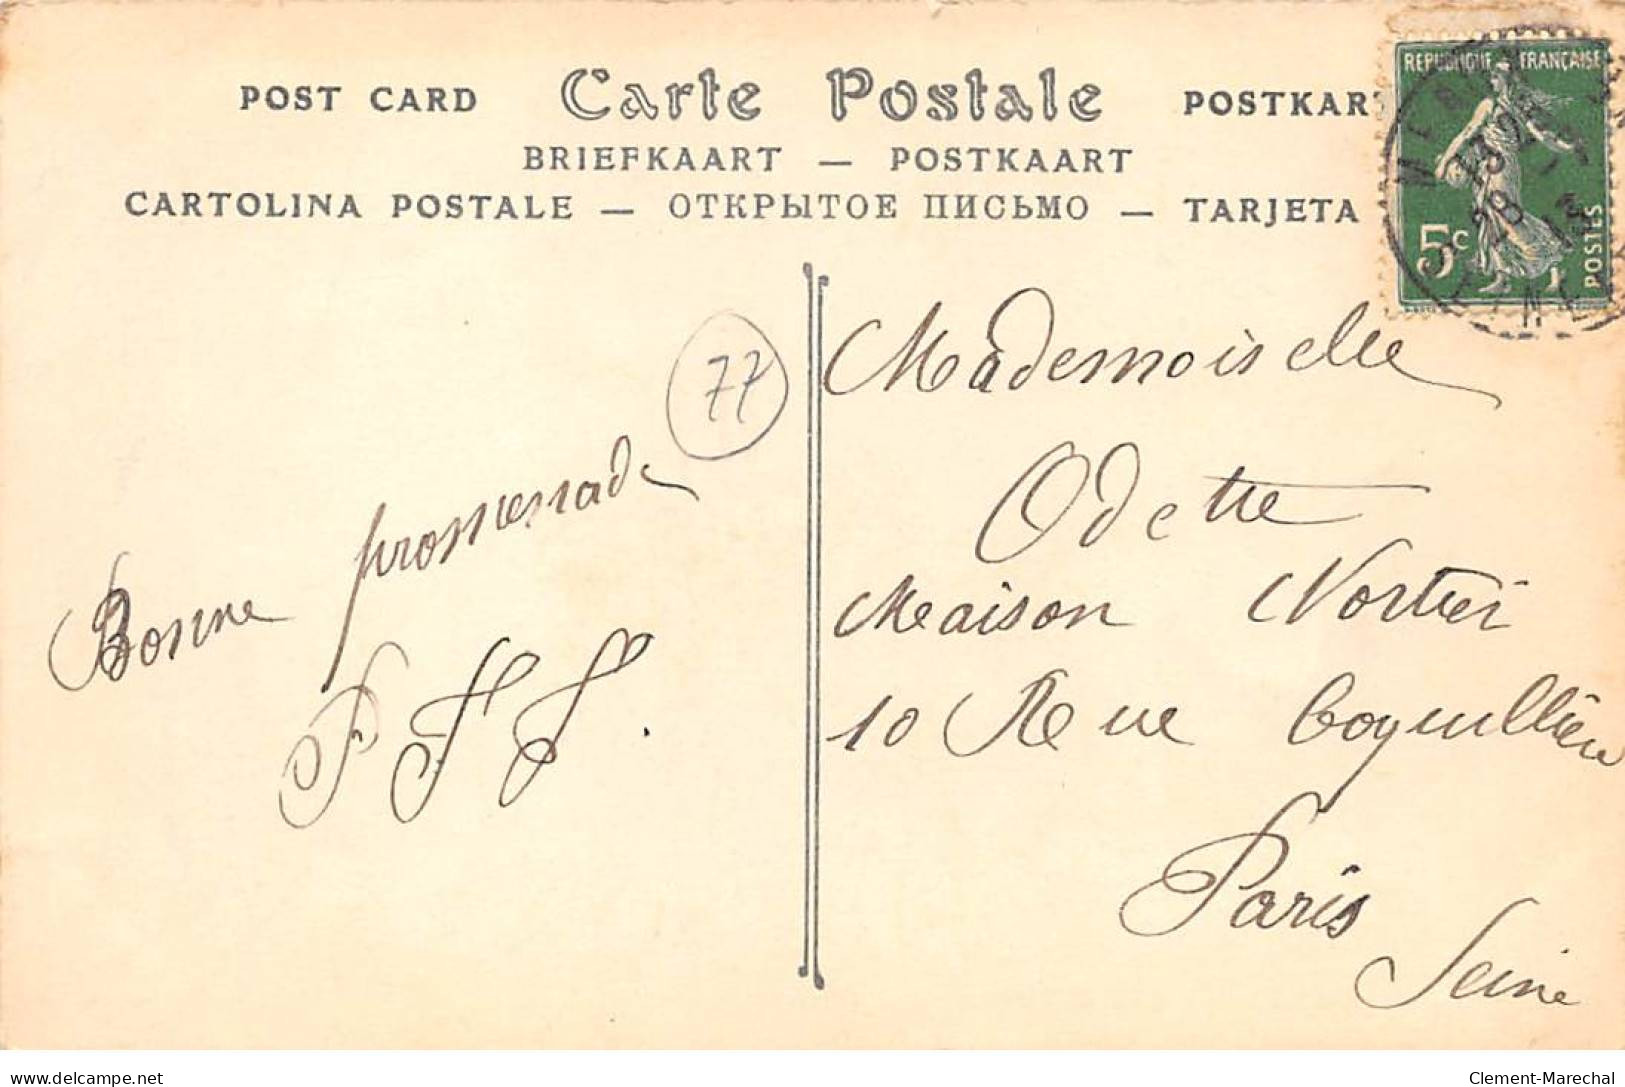 POST CARD Carte Postale POSTKAR
BRIEFKAART — POSTKAART
CARTOLINA POSTALE — ОТКРЫТОЕ ПИСЬМО — TARJETA
REPUBLIQUE FRANÇAISE
5c
POSTES
28
13
77
Bonne promenade
Mademoiselle
Odette
Maison Nortier
10 Rue Coquillière
Paris
Seine
delcampe.net
Clement-Marechal